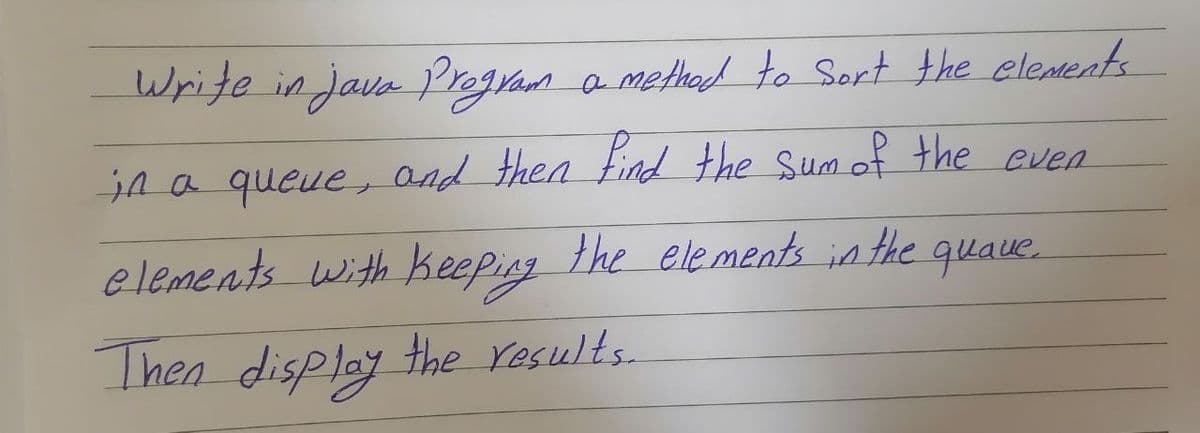 Write in java Program a method to Sort the elements
in a queue, and then find the sum of the even
elements with keeping the elements in the quaue.
Then display the results.